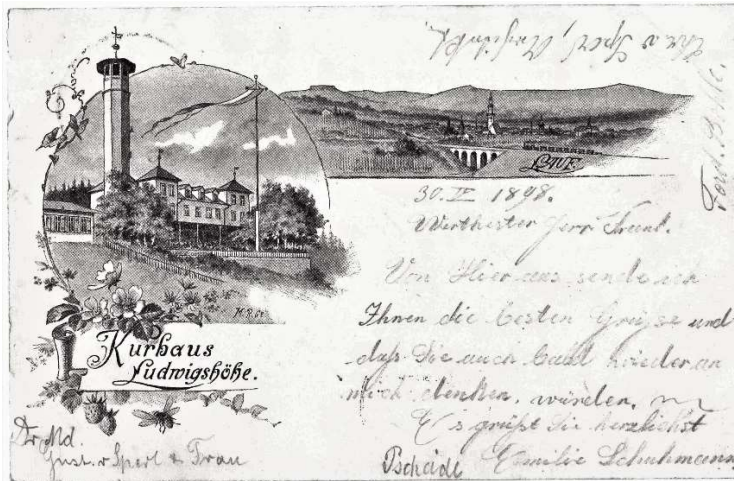 Kurhaus
Ludwigshöhe.
LAUF.
30. IV 1898.
Werthester Herr
Von Hier aus sende ich
Ihnen die besten Grüße und
daß Sie auch bald wieder an
mich denken, würden.
Es grüßt Sie herzlichst
Emilie Schuhmann
Dr Md.
Gust. v Sperl & Frau